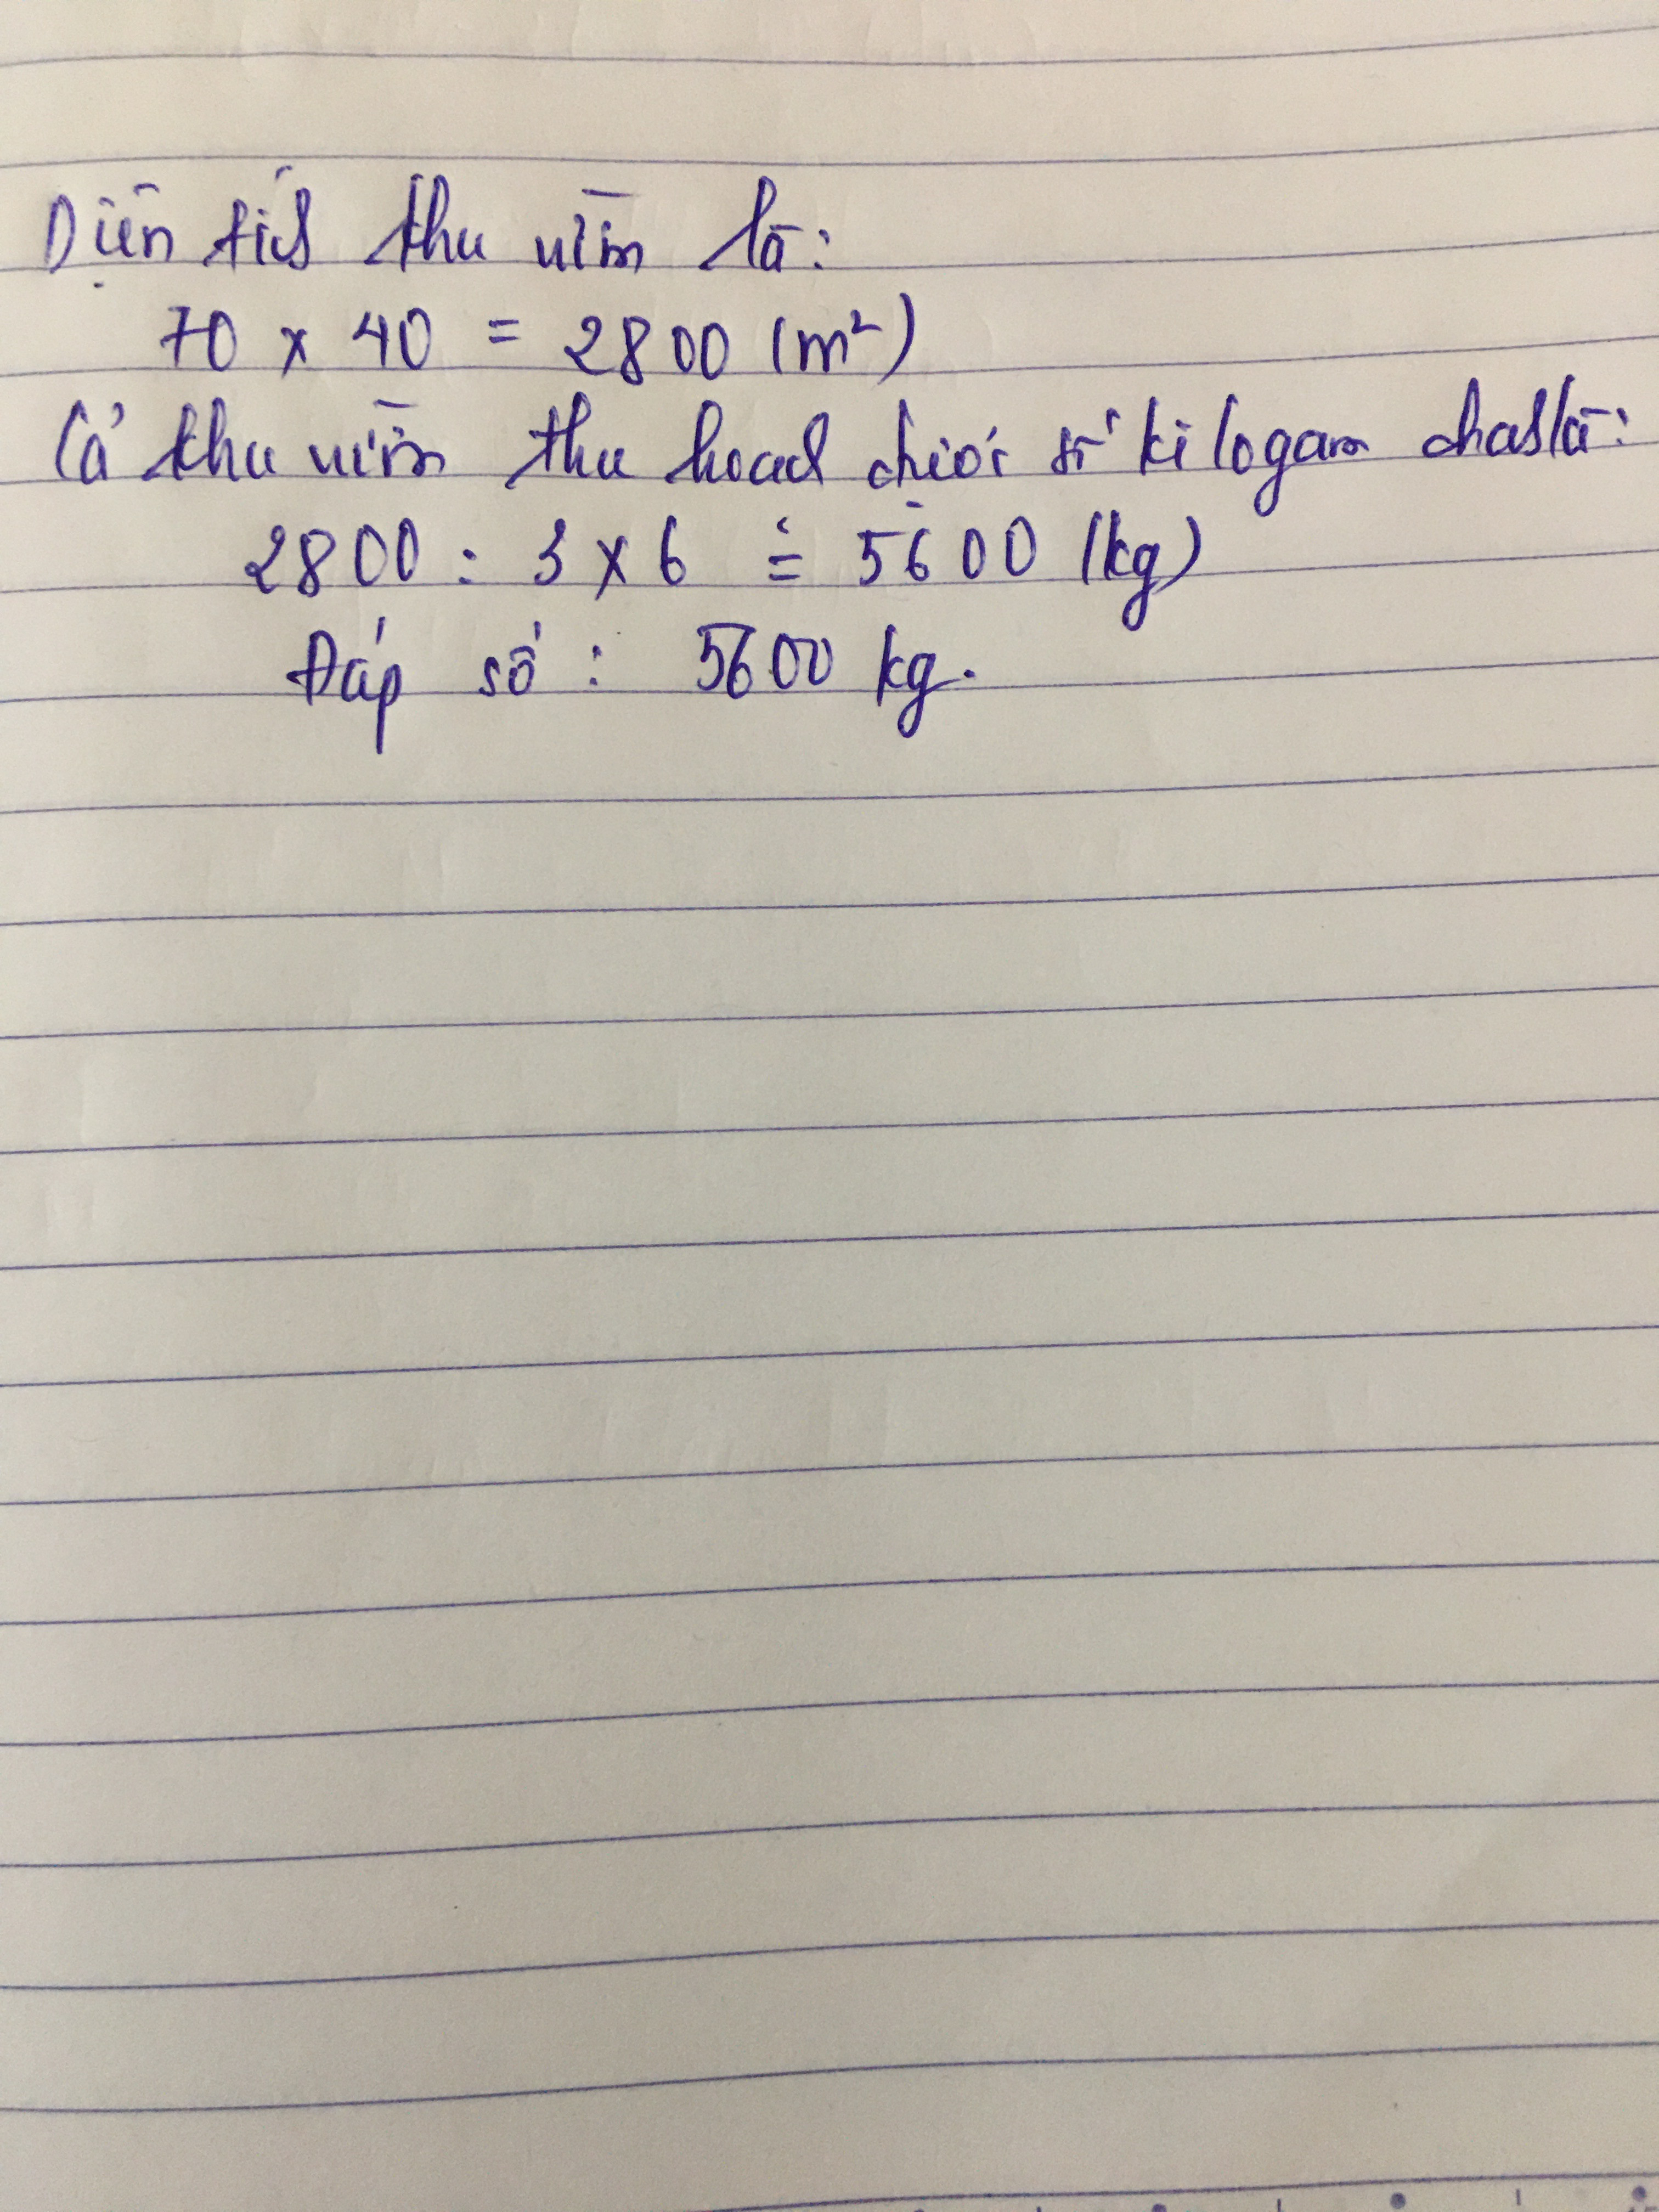 Diện tích khu vườn là:
70 x 40 = 2800 (m²)
Cả khu vườn thu hoạch được số kilogam chanh là:
2800 : 3 x 6 = 5600 (kg)
Đáp số : 5600 kg.